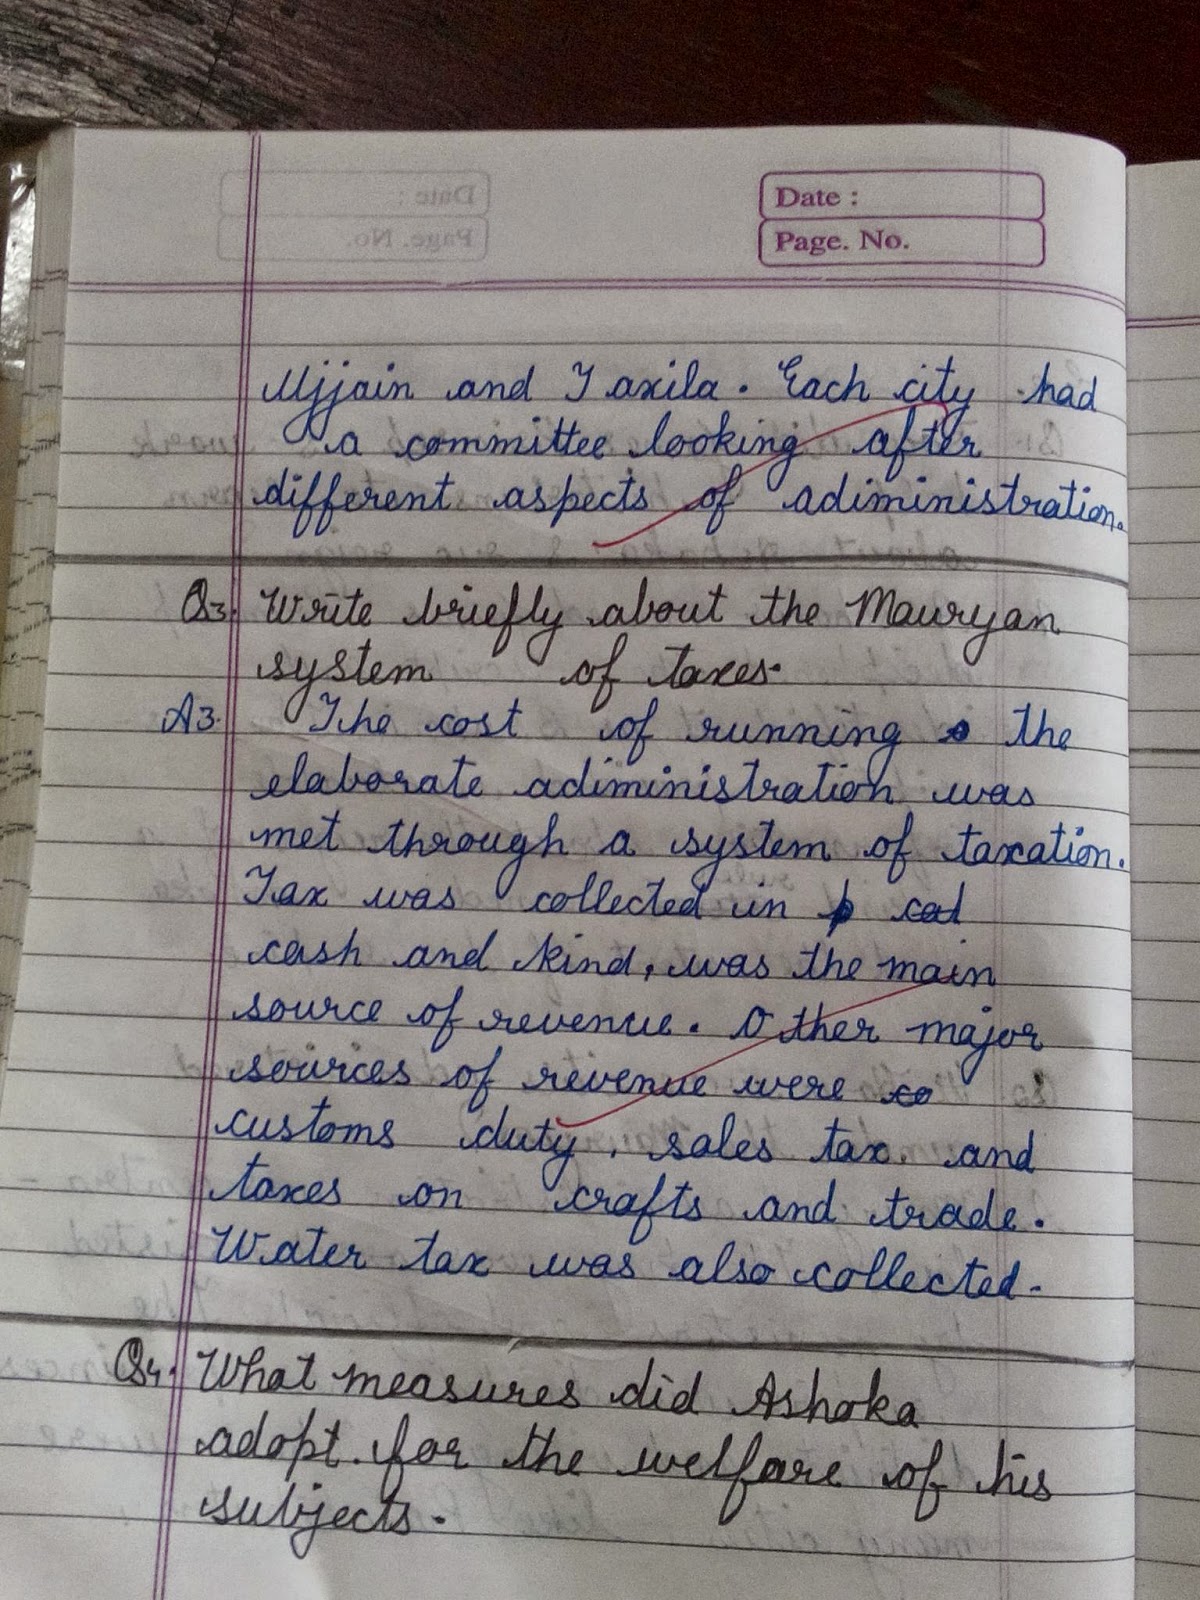 Date :
Page. No.
Ujjain and Taxila. Each city had
a committee looking after
different aspects of adiministration.
Q3. Write briefly about the Mauryan
system of taxes.
A3. The cost of running the
elaborate adiministration was
met through a system of taxation.
Tax was collected in
cash and kind, was the main
source of revenue. Other major
sources of revenue were
customs duty, sales tax. and
taxes on crafts and trade.
Water tax was also collected.
Q4. What measures did Ashoka
adopt. for the welfare of his
subjects.